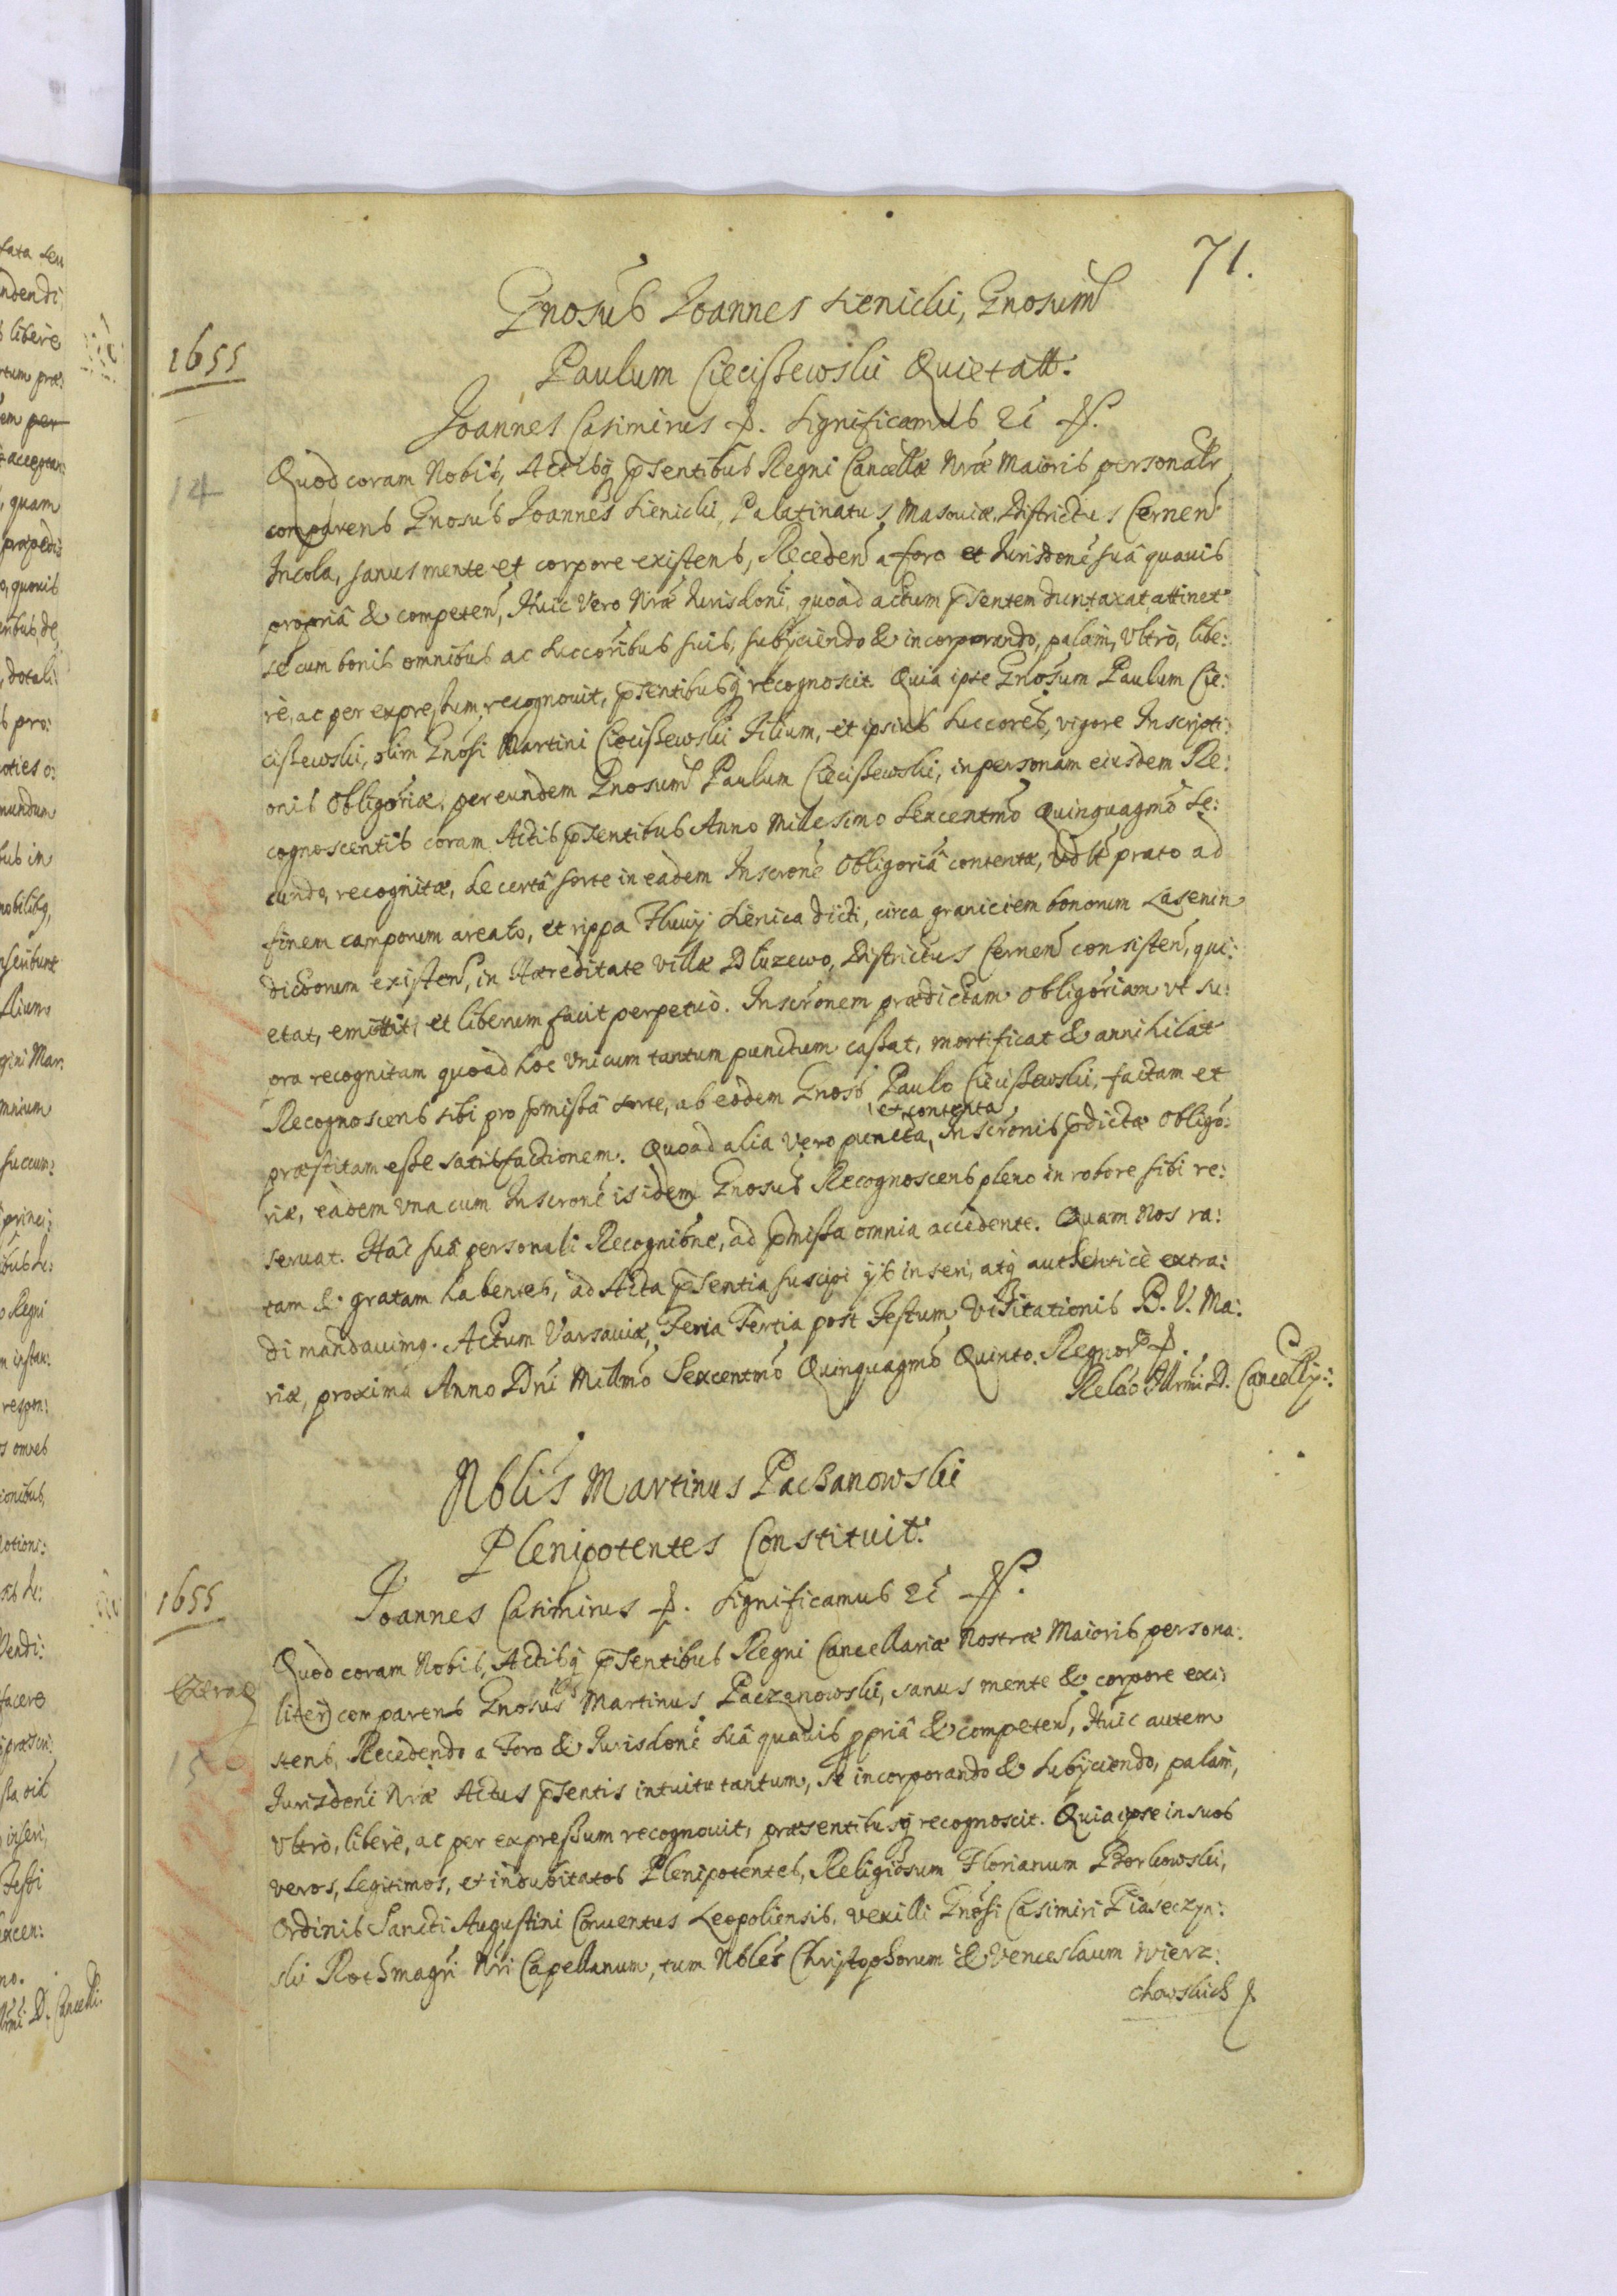 71.
Gnosus Joannes Sienicki, Gnosum
1655
Paulum Ciecissewski Quietatt.
Joannes Casimirus Significamus
14
Quod coram Nobis, Actisq, pntibus Regni Cancellæ Nræ Maioris personalr
comparens Gnosus Joannes Sienicki, Palatinatus Masouiæ, Districtus Cernen
Incola, sanus mente et corpore existens, Receden a foro et Jurisdone suâ quauis
propriâ & competen, Huic vero Nræ Jurisdoni, quoad actum pntem duntaxat attinet
se cum bonis omnibus ac succoribus suis, subyciendo & incorporando, palam, vltrò, libe:
rè, ac per expressum recognouit, pntibusq recognoscit. Quia ipse Gnosum Paulum Cie:
cissewski, olim Gnosi Martini Ciecissewski Filium, et ipsius succores, vigore Inscripti:
onis Obligoriæ, per eundem Gnosum Paulum Ciecissewski, in personam eiusdem Re:
cognoscentis coram Actis pntibus Anno Millesimo Sexcentmo Quinquagmo Se:
cundo, recognitæ, de certâ sorte in eadem Inscrone Obligoriâ contenta, prato ad
finem camporum areato, et rippa Fluuij Sienica dicti, circa graniciem bonorum Lasenin
dictorum existen, in Hæreditate villæ Dluzewo, Districtus Cernen consisten, qui:
etat, emittit, et liberum facit perpetuò. Inscronem prædictam obligoriam vt su:
pra recognitam quoad hoc vnicum tantum punctum cassat, mortificat & annihilat
Recognoscens sibi pro pmissâ sorte, ab eodem Gnoso Paulo Ciecissewski, factam et
præstitam esse satisfactionem. Quoad alia vero puncta, et contenta Inscronis pdictæ Obligo:
riæ, eadem vna cum Inscrone isidem Gnosus Recognoscens pleno in robore sibi re:
seruat. Hac suâ personali Recognitne, ad pmissa omnia accedente. Quam Nos ra:
tam & gratam habentes, ad Acta pntia suscipi ijs inseri, atq authenticè extra:
di mandauimq. Actum Varsauiæ, Feria Tertia post Festum Visitationis B. V. Ma:
riæ, proxima Anno Dni Millmo Sexcentmo Quinquagmo Quinto. Regnor
Relao Illrmi D. Cancellrij:
Nblis Martinus Paczanowski
Plenipotentes Constituit.
1655
Joannes Casimirus Significamus
Quod coram Nobis, Actisq pntibus Regni Cancellariæ Nostræ Maioris persona:
liter comparens Gnosus Martinus Paczanowski, sanus mente & corpore exi:
15
stens, Recedendo a Foro & Jurisdone suâ quauis ppriâ & competen, Huic autem
Jurisdoni Nræ Actus pntis intuitu tantum, se incorporando & subyciendo, palam,
vltrò, liberè, ac per expressum recognouit, præsentibusq recognoscit. Quia ipse in suos
veros, legitimos, et indubitatos Plenipotentes, Religiosum Florianum Borkowski,
Ordinis Sancti Augustini Conuentus Leopoliensis, vexilli Gnosi Casimiri Piaseczyn:
ski Rothmagri Nri Capellanum, tum Nbles Christophorum & Venceslaum Wierz:
chowskich